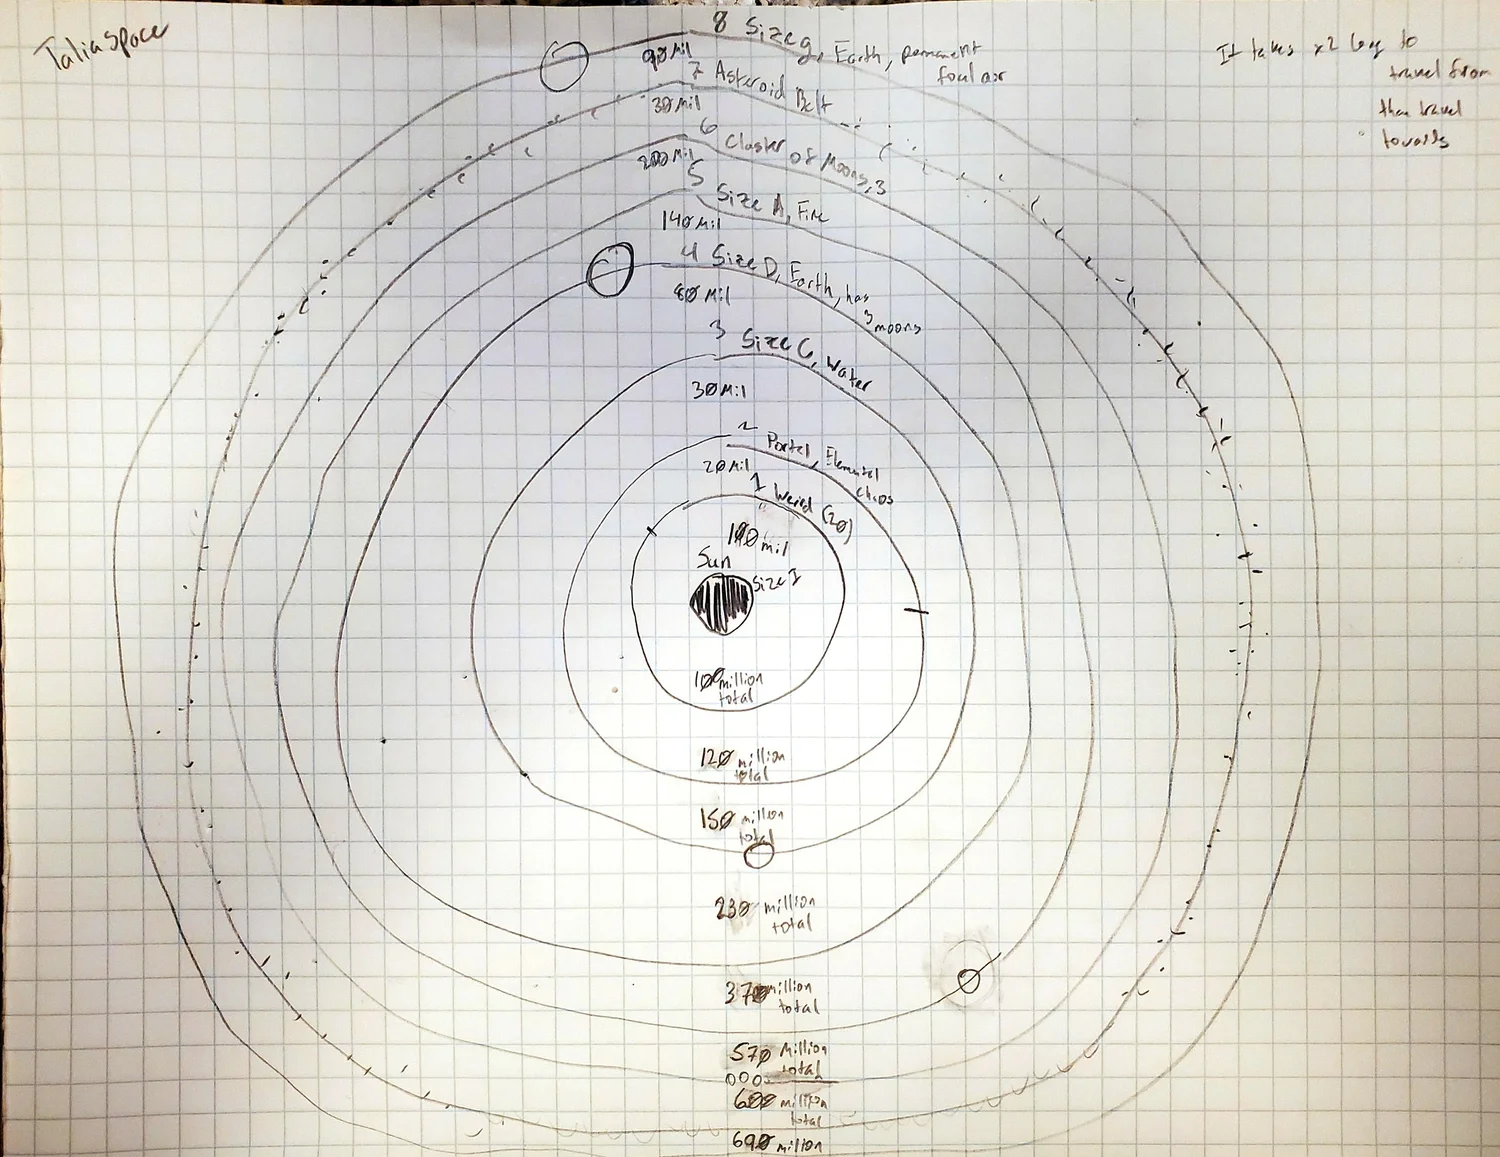 Talia Space
It takes x2 long to
travel from
than travel
towards
8 Size g, Earth, permanent
foul air
90 Mil
7 Asteroid Belt
30 Mil
6 Cluster of Moons, 3
200 Mil
5 Size A, Fire
140 Mil
4 Size D, Earth, has
3 moons
80 Mil
3 Size C, Water
30 Mil
2 Portal, Elemental
chaos
20 Mil
1 Weird (20)
100 mil
Sun
Size I
100 million
total
120 million
total
150 million
total
230 million
total
370 million
total
570 Million
total
600 million
total
690 million